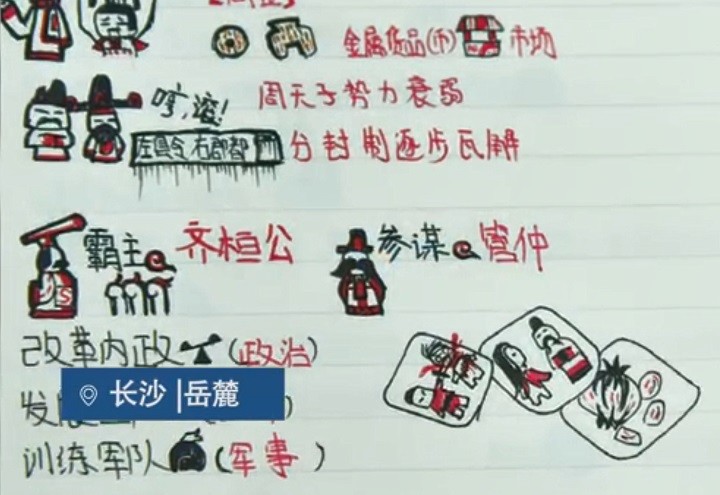 金属货品(币) 市场
哼,滚! 周天子势力衰弱
左县令,右郡都 分封制逐步瓦解
霸主 齐桓公 参谋 管仲
改革内政 (政治)
长沙 | 岳麓
发展
训练军队 (军事)